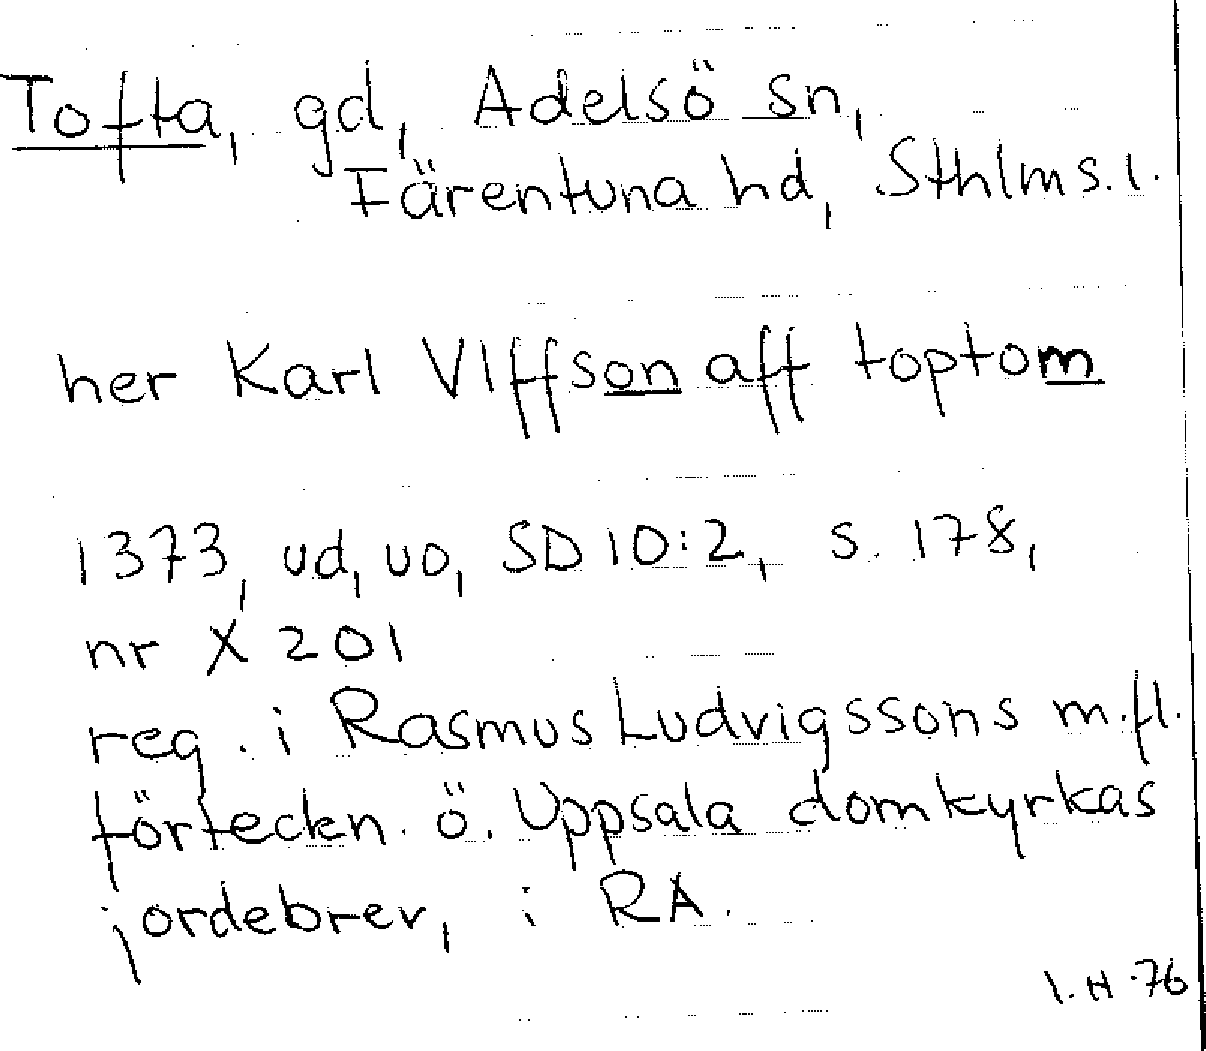 Tofta, gd, Adelsö sn,
Färentuna hd, Sthlms. l.
her Karl Vlffson aff toptom
1373, ud, uo, SD 10:2, s. 178,
nr X 201
reg. i Rasmus Ludvigssons m.fl.
förteckn. ö. Uppsala domkyrkas
jordebrev, i RA.
I. H -76